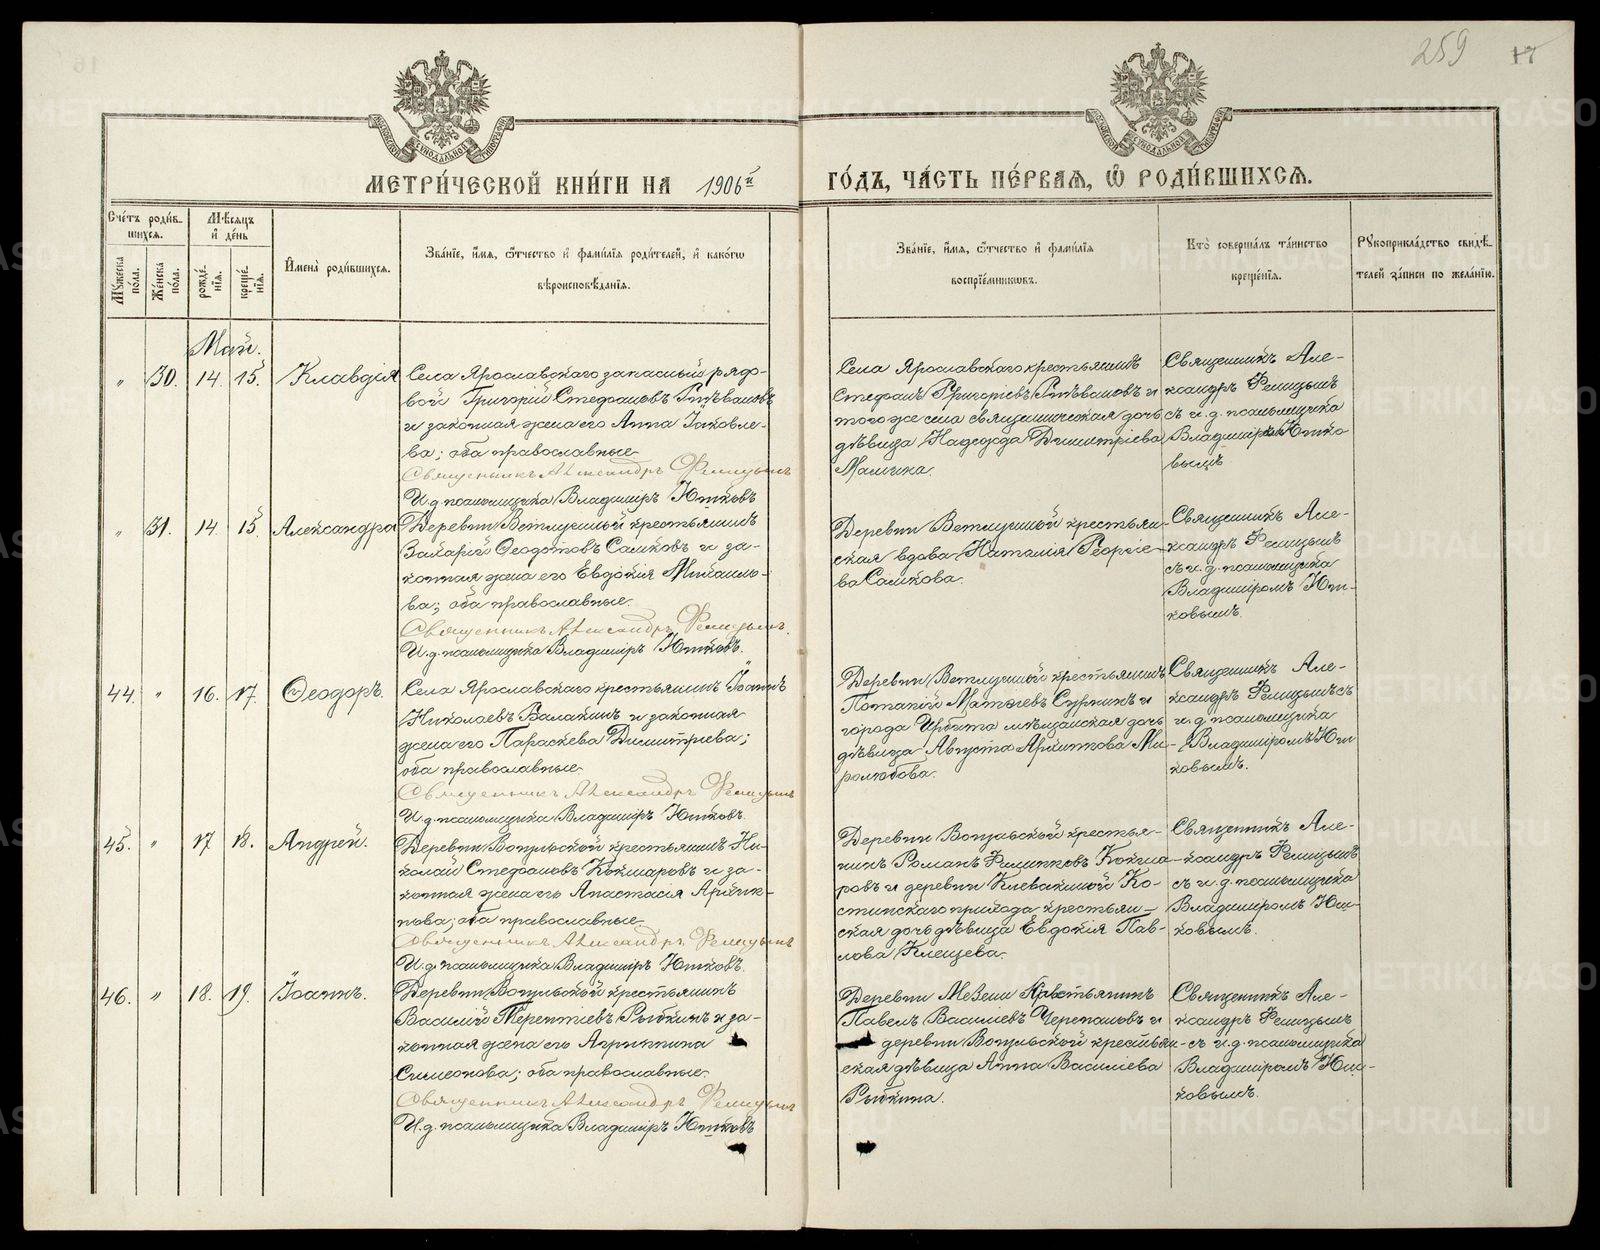 259 17
МЕТРИ́ЧЕСКОЙ КНИ́ГИ НА 1906й ГО́ДЪ, ЧА́СТЬ ПЕ́РВАѦ, Ѡ҆ РОДИ́ВШИХСѦ.
Сче́тъ роди́в-
шихсѧ.
Мꙋ́жеска по́ла.
Же́нска по́ла.
Мѣ́сѧцъ и҆ де́нь
рожде́нїѧ.
креще́нїѧ.
И҆мена̀ роди́вшихсѧ.
Зва́нїе, и҆́мѧ, ѻ҆́тчество и҆ фами́лїѧ роди́телей, и҆ како́гѡ
вѣроисповѣ́данїѧ.
Зва́нїе, и҆́мѧ, ѻ҆́тчество и҆ фами́лїѧ
воспрїе́мникѡвъ.
Кто̀ соверша́лъ та́инство
креще́нїѧ.
Рꙋкоприкла́дство свидѣ́-
телей за́писи по жела́нїю.
Май.
" 30. 14. 15. Клавдія
Села Ярославскаго запасный рядо-
вой Григорій Стефановъ
и законная жена его Анна Іаковле-
ва; оба православные.
Священникъ Александръ
И.д. псаломщика Владиміръ Ютковъ
Села Ярославскаго крестьянинъ
Стефанъ Григоріевъ и
того же села священническая дочь
дѣвица Надежда Димитріева
Мамина.
Священникъ Але-
ксандръ
съ и.д. псаломщика
Владиміромъ Ютко-
вымъ
" 31. 14. 15. Александра
Деревни крестьянинъ
Захарій Ѳеодотовъ Самковъ и за-
конная жена его Евдокія Михаило-
ва; оба православные.
Священникъ Александръ
И.д. псаломщика Владиміръ Ютковъ.
Деревни крестьян-
ская вдова Наталія Георгіе-
ва Самкова.
Священникъ Але-
ксандръ
съ и.д. псаломщика
Владиміромъ Ют-
ковымъ.
44. " 16. 17. Ѳеодоръ.
Села Ярославскаго крестьянинъ Іоаннъ
Николаевъ Балакинъ и законная
жена его Параскева Димитріева;
оба православные.
Священникъ Александръ
И.д. псаломщика Владиміръ Ютковъ.
Деревни крестьянинъ
Потапій Матѳіевъ Суринъ и
города Ирбита мѣщанская дочь
дѣвица Августа Архиппова Ми-
ролюбова.
Священникъ Але-
ксандръ съ
и.д. псаломщика
Владиміромъ Ют-
ковымъ.
45. " 17 18. Андрей.
Деревни крестьянинъ Ни-
колай Стефановъ Кокшаровъ и за-
конная жена его Анастасія Архип-
пова; оба православные.
Священникъ Александръ
И.д. псаломщика Владиміръ Ютковъ.
Деревни крестья-
нинъ Романъ Филипповъ Кокша-
ровъ и деревни Клевакиной Ко-
стинскаго прихода крестьян-
ская дочь дѣвица Евдокія Пав-
лова Клещева.
Священникъ Але-
ксандръ
съ и.д. псаломщика
Владиміромъ Ют-
ковымъ.
46. " 18. 19. Іоаннъ.
Деревни крестьянинъ
Василій Терентіевъ Рыбкинъ и за-
конная жена его Агриппина
Симеонова; оба православные.
Священникъ Александръ
И.д. псаломщика Владиміръ Ютковъ
Деревни крестьянинъ
Павелъ Василіевъ Черепановъ и
деревни крестьян-
ская дѣвица Анна Василіева
Рыбкина.
Священникъ Але-
ксандръ
съ и.д. псаломщика
Владиміромъ Ют-
ковымъ.
METRIKI.GASO-URAL.RU